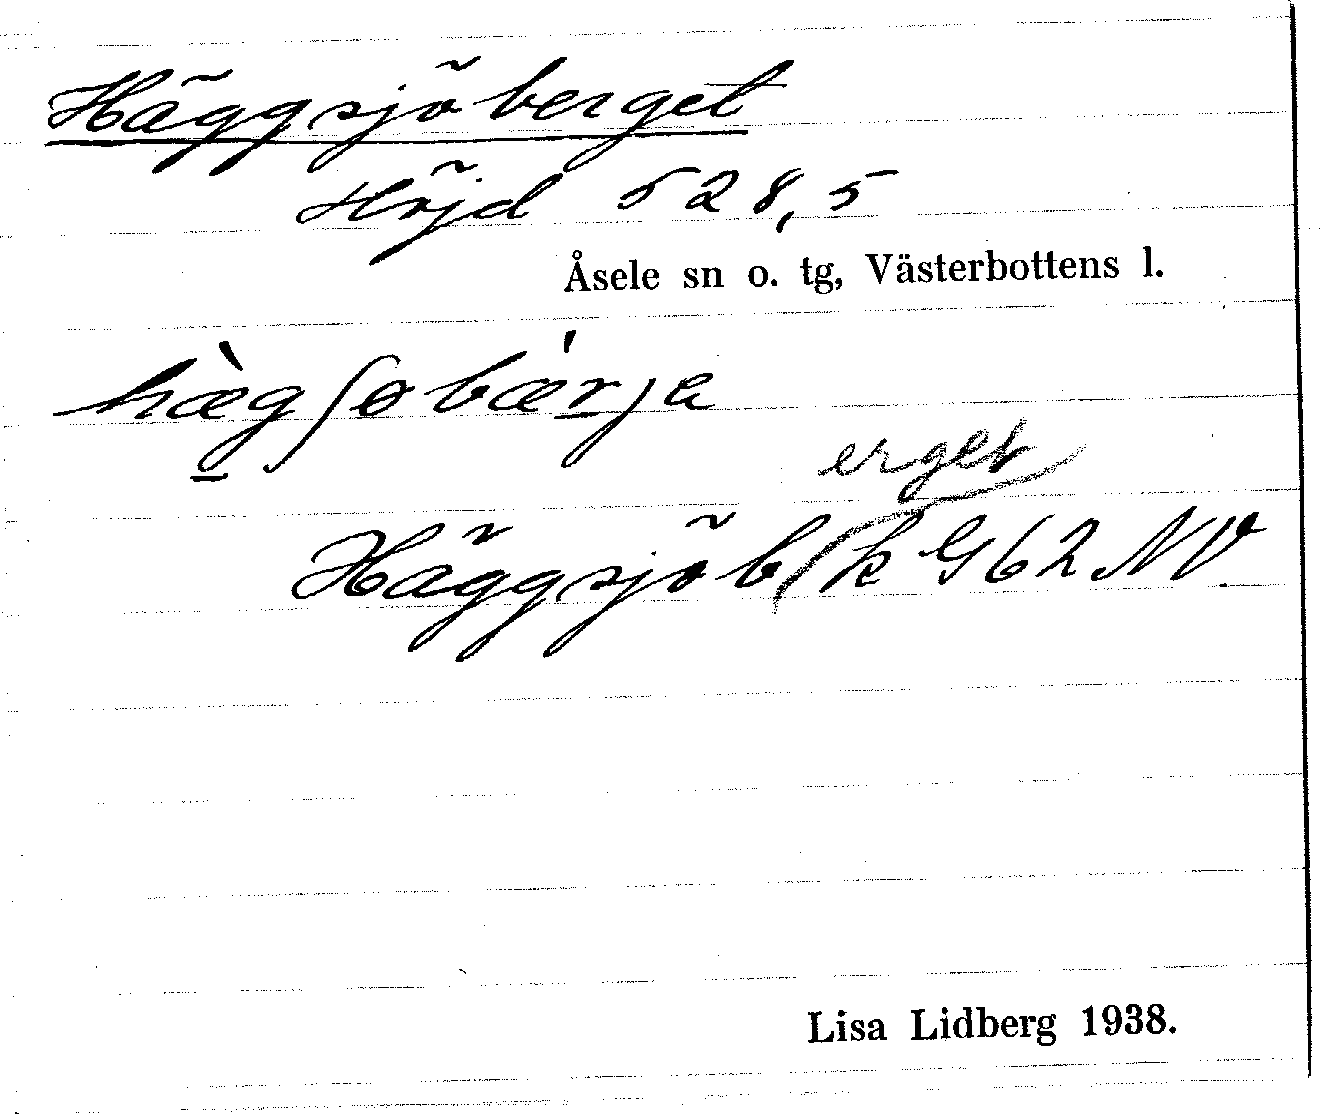 Häggsjöberget
Höjd 528,5
Åsele sn o. tg, Västerbottens l.
hæ̀gʃøbǽrja
erget
Häggsjöb/k G62NV
Lisa Lidberg 1938.